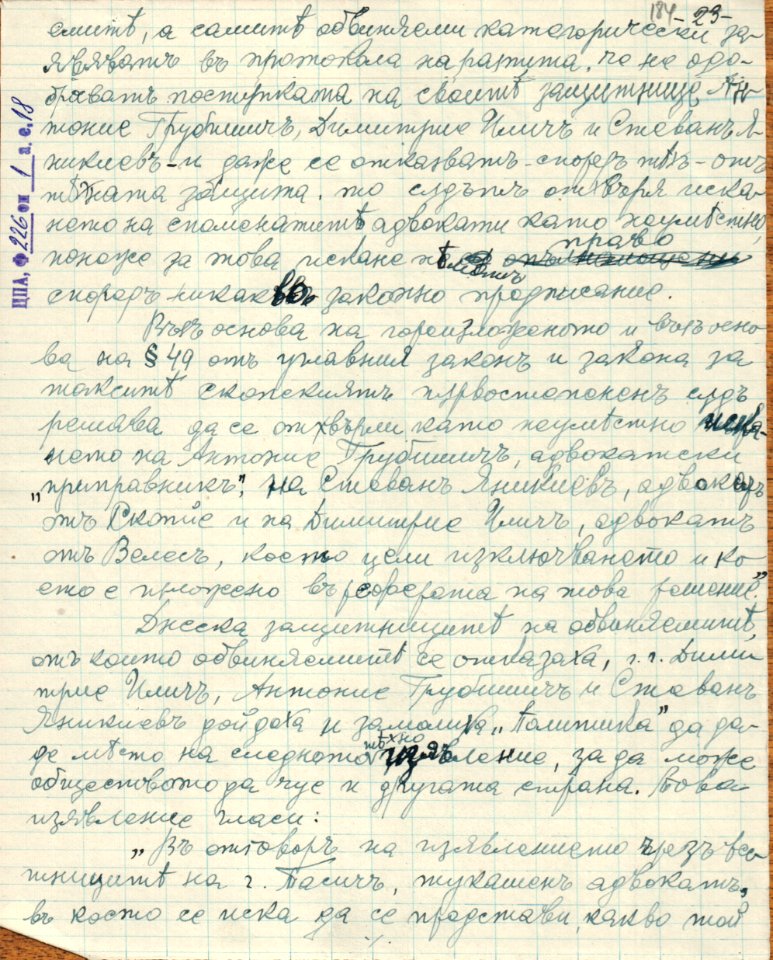 184 - 23 -
емитѣ, а самитѣ обвиняеми категорически за-
явяватъ въ протокола на разпита, че не одо-
бряватъ постѫпката на своитѣ защитници Ан-
тоние Грубишичъ, Димитрие Иличъ и Стеванъ Я-
никиевъ – и даже се отказватъ – споредъ тѣхъ – отъ
тѣхната защита, то сѫдътъ отхвърля иска-
нето на споменатитѣ адвокати като неумѣстно,
понеже за това искане нѣматъ право
споредъ никакво законно предписание.
Възъ основа на гореизложеното и възъ осно-
ва на § 49 отъ углавния законъ и закона за
таксите скопскиятъ първостепененъ сѫдъ
решава да се отхвърли като неумѣстно иска-
нето на Антоние Грубишичъ, адвокатски
„приправникъ", на Стеванъ Яникиевъ, адвокатъ
отъ Скопие и на Димитрие Иличъ, адвокатъ
отъ Велесъ, което цели изключването и ко-
ето е изложено въ реферата на това решение."
Днеска защитницитѣ на обвиняемитѣ,
отъ които обвиняемитѣ се отказаха, г.г. Дими
трие Иличъ, Антоние Грубишичъ и Стеванъ
Яникиевъ дойдоха и замолиха „Политика" да да-
де мѣсто на следното тѣхно изявление, за да може
обществото да чуе и другата страна. Това
изявление гласи:
„Въ отговоръ на изявлението чрезъ вес-
тницитѣ на г. Пасичъ, тукашенъ адвокатъ,
въ което се иска да се представи, какво той
./.
ЦПА, ф 226 оп 1 а.е. 18